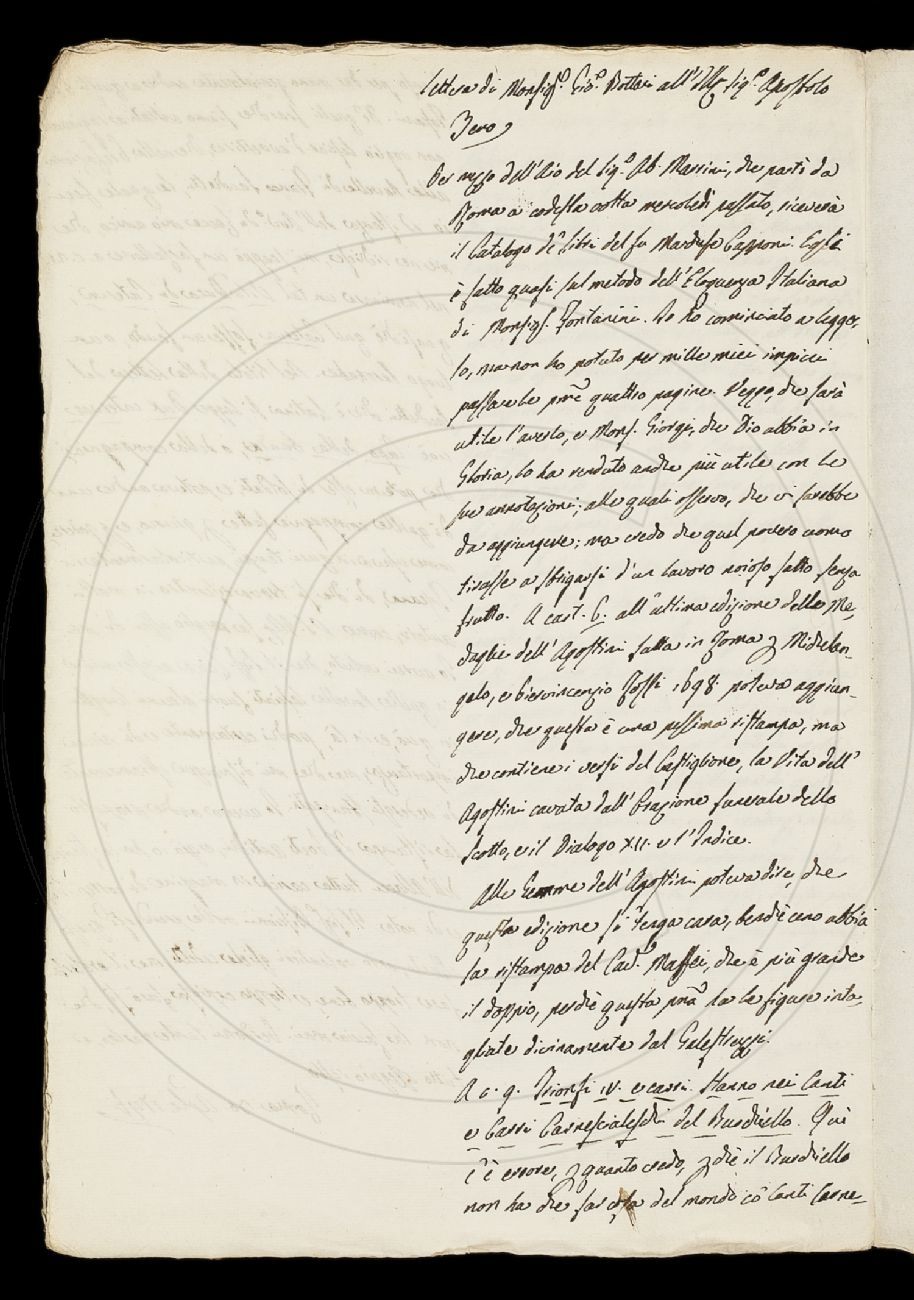 Lettera di Monsig.r Gio. Bottari all'Ill. Sig.r Apostolo
Zeno
Per mezzo dell' Aio del Sig.r Ab. Massini, che partì da
Roma a codesta volta mercoledì passato, riceverà
il Catalogo de' libri del fu Marchese Capponi. Egli
è fatto quasi sul metodo dell' Eloquenza Italiana
di Monsig.r Fontanini. Io ho cominciato a legger
lo, ma non ho potuto per mille miei impicci
passare le prime quattro pagine. Veggo, che sarà
utile l'averlo, e Mons. Giorgi, che Dio abbia in
Gloria, lo ha renduto anche più utile con le
sue annotazioni; alle quali osservo, che vi sarebbe
da aggiungere; ma credo che quel povero uomo
tirasse a sbrigarsi d'un lavoro noioso fatto senza
frutto. A cart. 6. all' ultima edizione delle Me-
daglie dell' Agostini fatta in Roma p Michelan-
gelo, e Piervincenzio Rossi 1698. poteva aggiun-
gere, che questa è una pessima ristampa, ma
che contiene i versi del Castiglione, la Vita dell'
Agostini cavata dall' Orazione funerale dello
Scotto, e il Dialogo XII. e l'Indice.
Alle Gemme dell' Agostini poteva dire, che
questa edizione si tenga cara, benchè uno abbia
la ristampa del Cav.r Maffei, che è più grande
il doppio, perchè questa pma ha le figure inta-
gliate divinamente dal Galestruzzi.
A c. 9. Trionfi IV. e carri. Hanno nei Canti
e Carri Carnescialeschi del Burchiello. Qui
c'è errore, p quanto credo, p chè il Burchiello
non ha che far cosa del mondo cō Canti Carne-